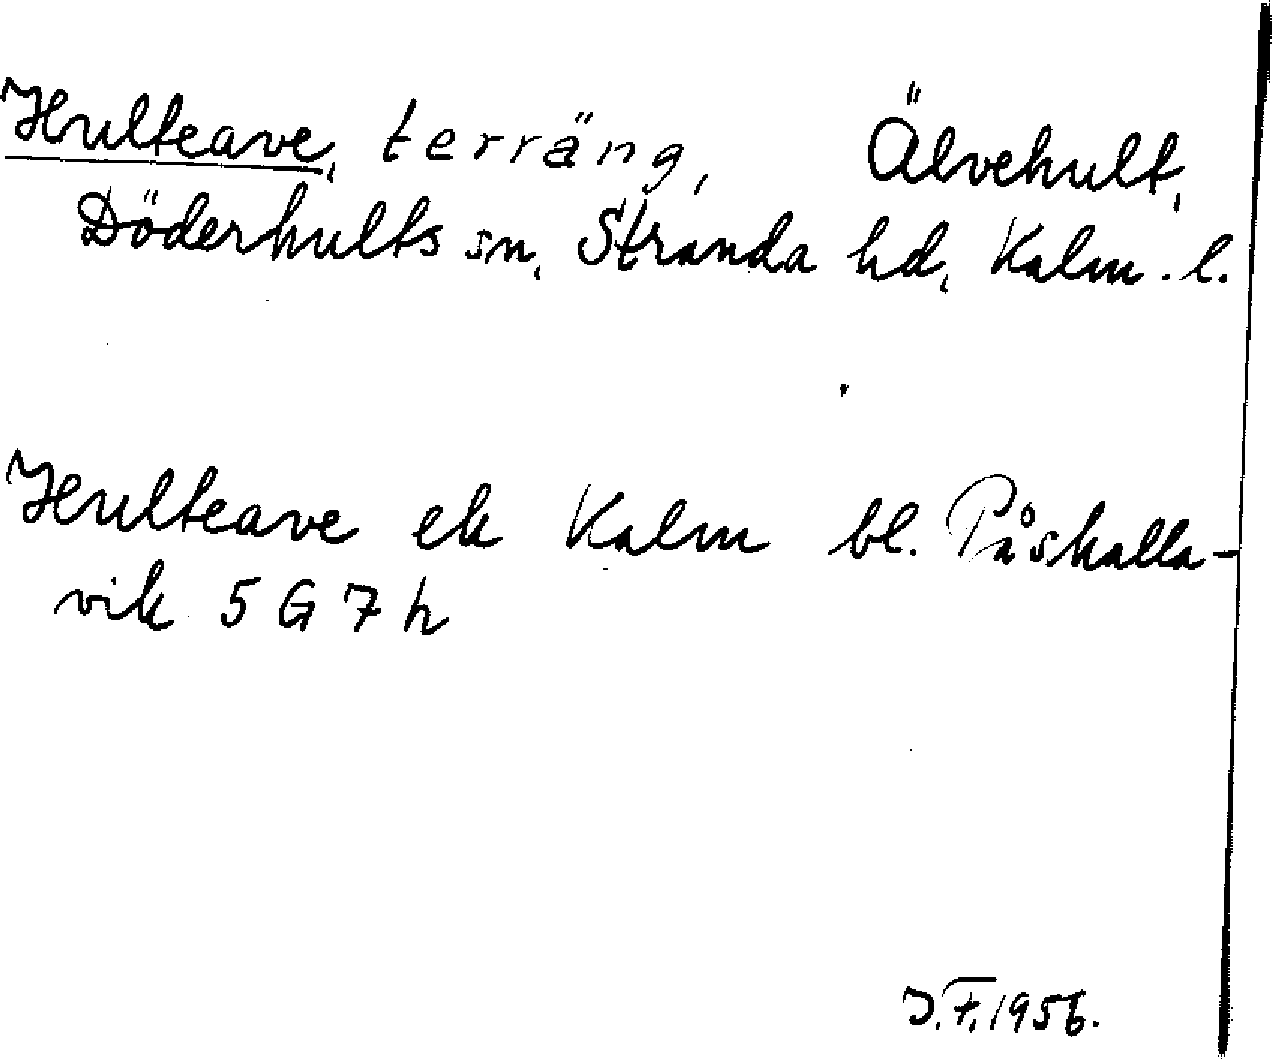 Hulteave, terräng, Älvehult,
Döderhults sn, Stranda hd, Kalm. l.
Hulteave ek Kalm bl. Påskalla-
vik 5 G 7 h
J.F. 1956.